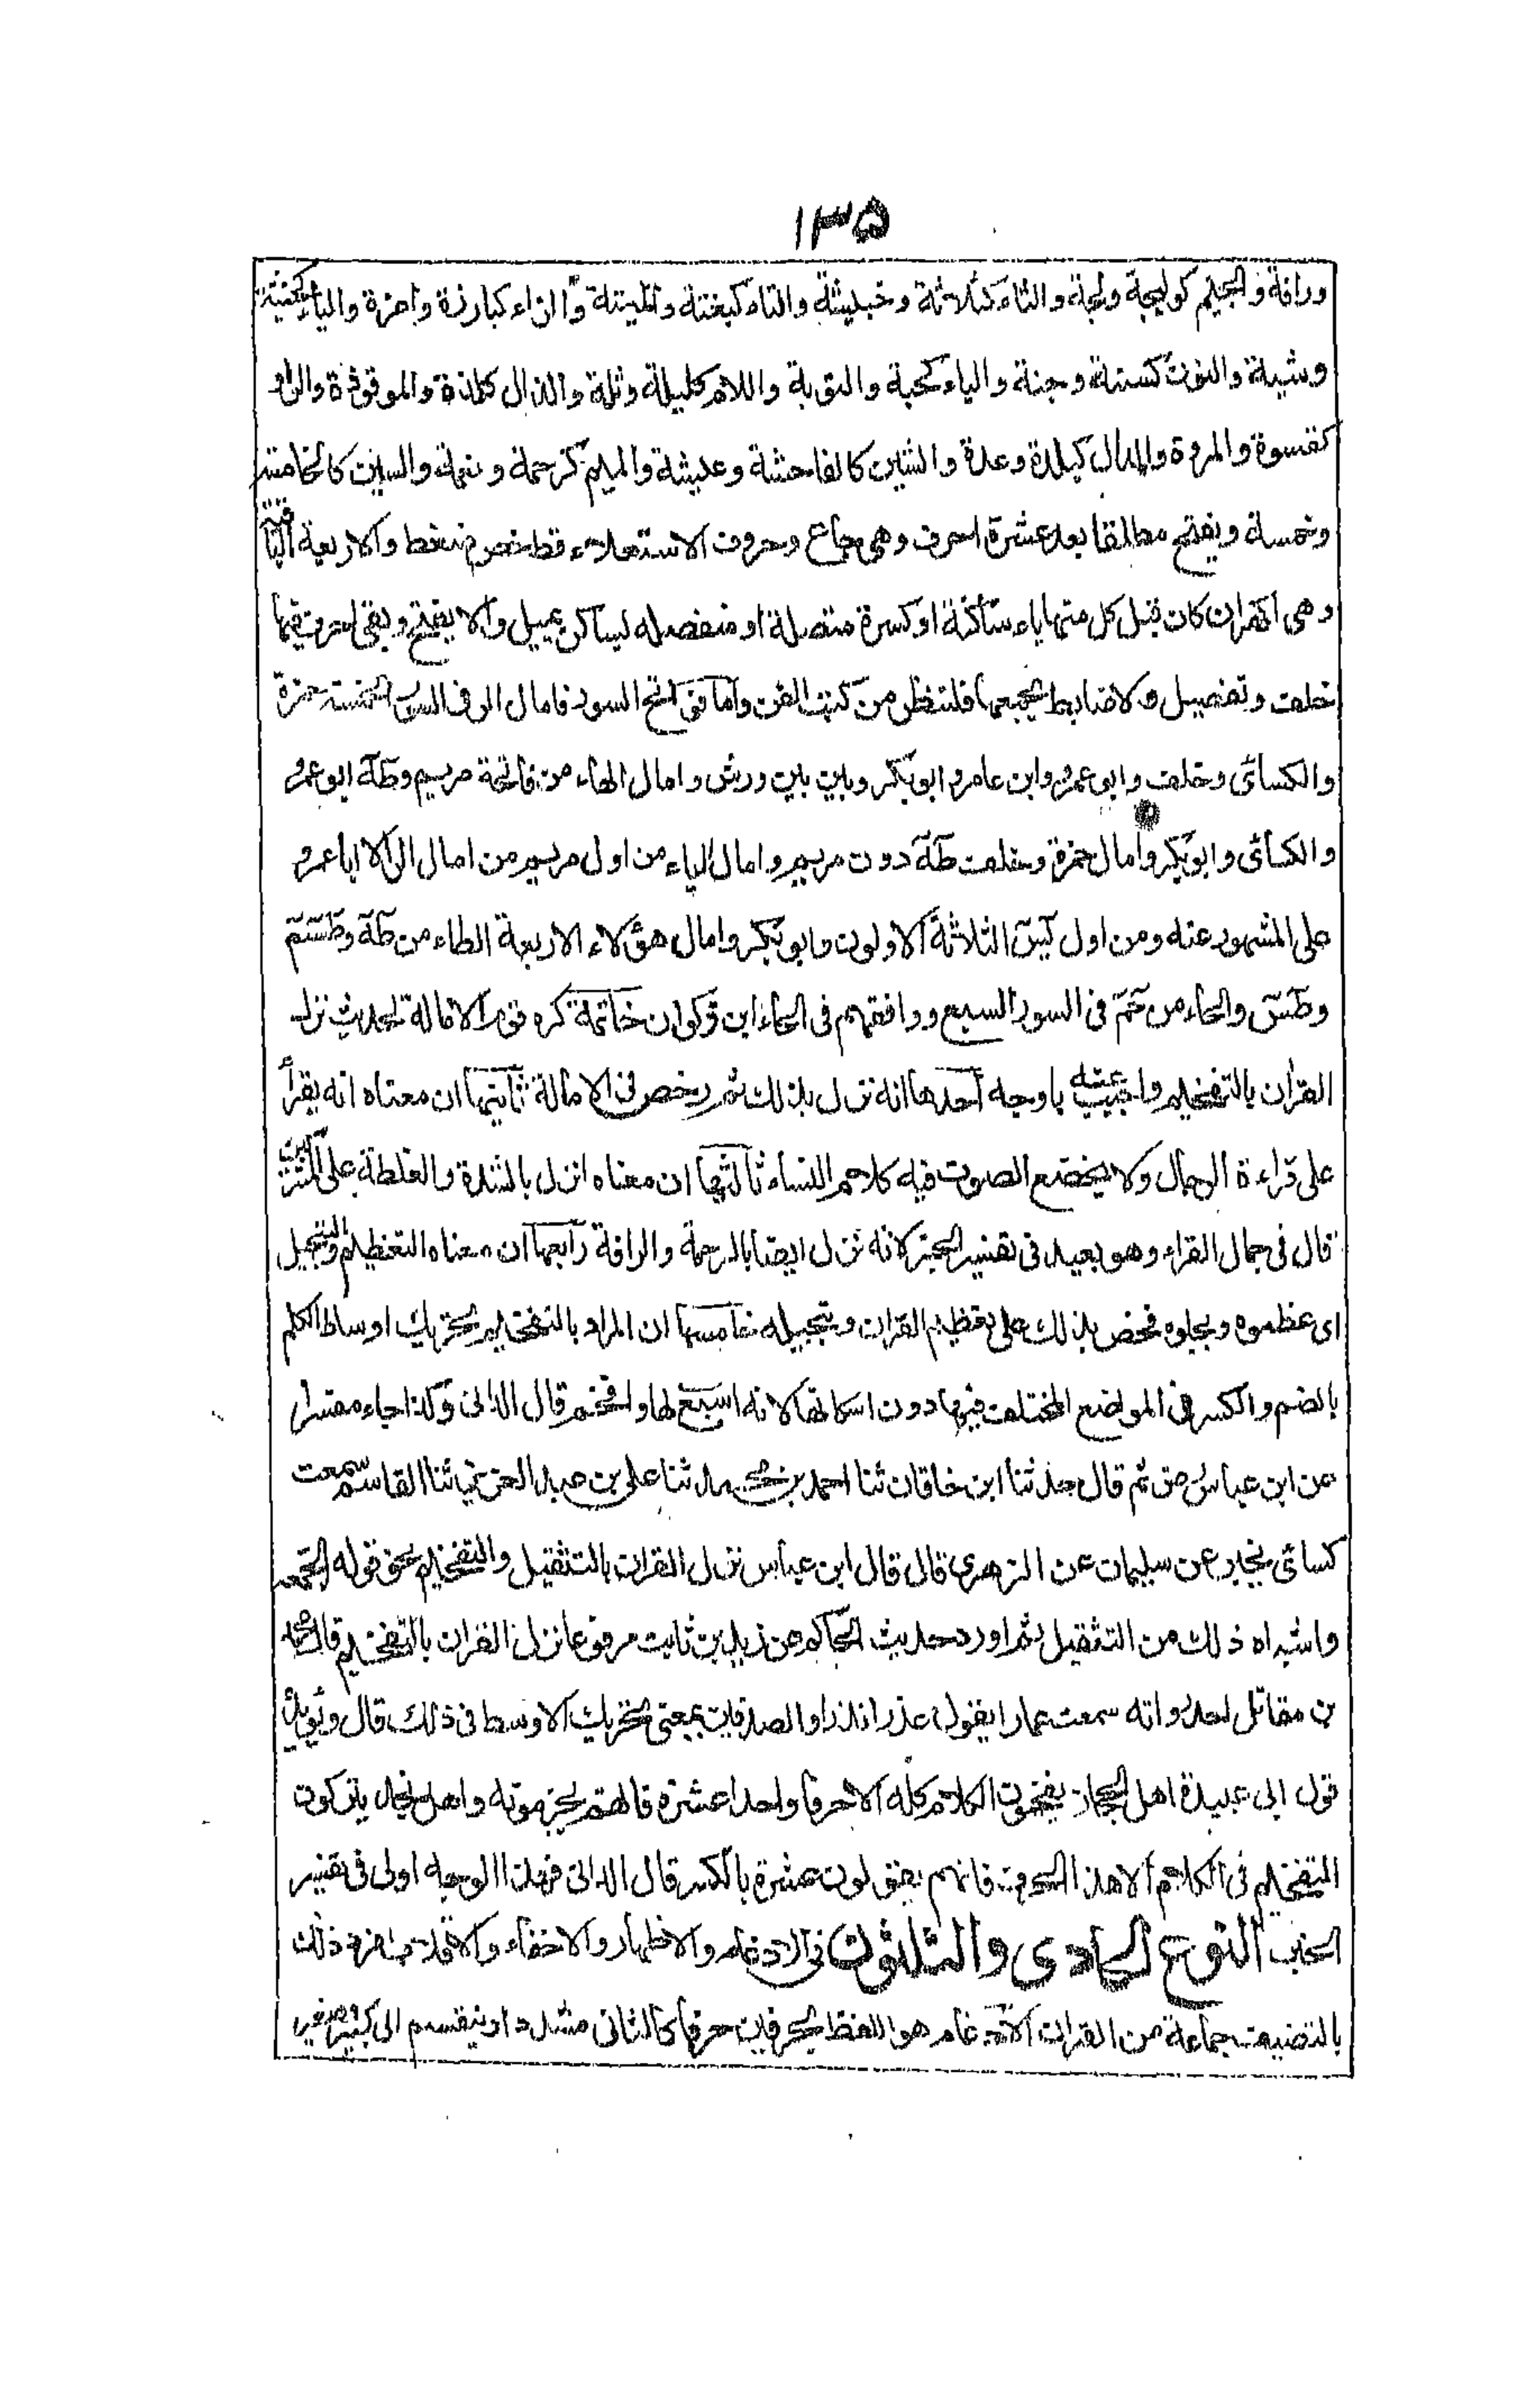 ١٣٥
ورافة والجيم كوليجة ولجة والثاء كثلاثة وخبيثة والتاء كبغتة والميتة والزاء كبارزة واعزة والياء كخشية
وشيبة والنون كسنة وجنة والباء كحبة والتوبة واللام كليلة وثلة والذال كلذة والموقوذة والواو
كقسوة والمروة والدال كبلدة وعدة والشين كالفاحشة وعيشة والميم كرحمة ونعمة والسين كالخامسة
وخمسة ويفتح مطلقا بعد عشرة احرف وهى جاع وحروف الاستعلاء قظ خص ضغط والاربعة الباقية
وهى اكهر ان كان قبل كل منها ياء ساكنة او كسرة متصلة او منفصله بساكن يميل والا يفتح وبقى احرف فيها
خلف وتفصيل ولا ضابط يجمعها فلتنظر من كتب الفن واما فواتح السور فامال الر فى السور الخمسة حمزة
والكسائى وخلف وابو عمرو وابن عامر وابو بكر وبين بين ورش وامال الهاء من فاتحة مريم وطه ابو عمرو
والكسائى وابو بكر وامال حمزة وخلف طه دون مريم وامال الياء من اول مريم من امال الر الا ابا عمرو
على المشهور عنه ومن اول يس الثلاثة الاولون وابو بكر وامال هؤلاء الاربعة الطاء من طه وطسم
وطس والحاء من حم فى السور السبع ووافقهم فى الحاء ابن ذكوان خاتمة كره قوم الامالة لحديث نزل
القران بالتفخيم واجيب عنه باوجه احدها انه نزل بذلك ثم رخص فى الامالة ثانيها ان معناه انه يقرأ
على قراءة الرجال ولا يخضع الصوت فيه كلام النساء ثالثها ان معناه انزل بالشدة والغلظة على المشركين
قال فى جمال القراء وهو بعيد فى تفسير الخبر لانه نزل ايضا بالرحمة والرافة رابعها ان معناه التعظيم والتبجيل
اى عظموه وبجلوه فحض بذلك على تعظيم القران وتبجيله خامسها ان المراد بالتفخيم تحريك اوساط الكلم
بالضم والكسر فى المواضع المختلف فيها دون اسكانها لانه اشبع لها وافخم قال الدانى وكذا جاء مفسرا
عن ابن عباس ثم قال حدثنا ابن خاقان ثنا احمد بن محمد ثنا على بن عبد العزيز ثنا القاسم سمعت
كسائى يخبر عن سليمان عن الزهرى قال قال ابن عباس نزل القران بالتثقيل والتفخيم نحو قوله الجمعة
واشباه ذلك من التثقيل ثم اورد حديث الحاكم عن زيد بن ثابت مرفوعا نزل القران بالتفخيم قال محمد
بن مقاتل احد رواته سمعت عمارا يقول عذرا نذرا والصدفين بمعنى تحريك الاوسط فى ذلك قال ويؤيده
قول ابى عبيدة اهل الحجاز يفخمون الكلام كله الا حرفا واحدا عشرة فانهم يجزمونه واهل نجد يتركون
التفخيم فى الكلام الا هذا الحرف فانهم يقولون عشرة بالكسر قال الدانى فهذا الوجه اولى فى تفسير
الخبر النوع الحادى والثلثون فى الادغام والاظهار والاخفاء والاقلاب افرد ذلك
بالتضيف جماعة من القراء الادغام هو اللفظ بحرفين حرفا كالثانى مشددا وينقسم الى كبير وصغير